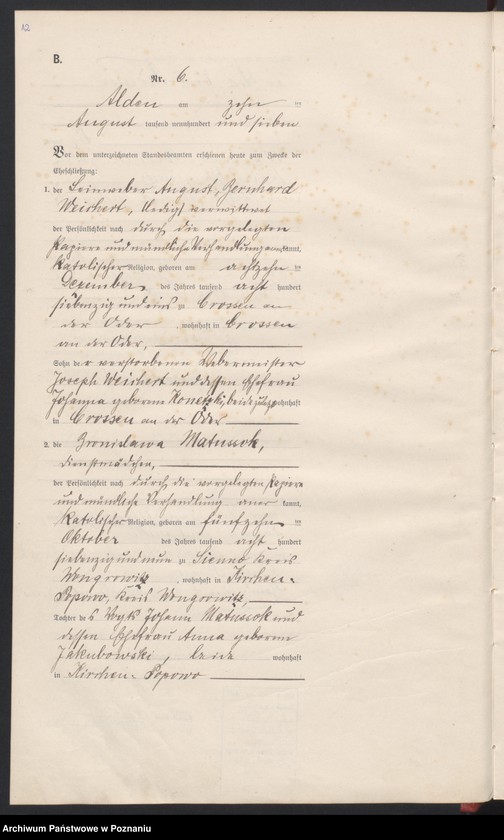 12
B.
Nr. 6.
Alden am zehn ten
August tausend neunhundert und sieben
Vor dem unterzeichneten Standesbeamten erschienen heute zum Zwecke der
Eheschließung:
1. der Leinweber August, Bernhard
Weichert, (ledig) verwittwet
der Persönlichkeit nach durch die vorgelegten
Papiere und mündliche Verhandlung anerkannt,
katolischer Religion, geboren am achtzehn ten
Dezember des Jahres tausend acht hundert
siebenzig und eins zu Crossen an
der Oder, wohnhaft in Crossen
an der Oder,
Sohn des verstorbenen Webermeister
Joseph Weichert und dessen Ehefrau
Johanna geborenen beide zuletzt wohnhaft
in Crossen an der Oder
2. die Bronislawa Matussok,
Dienstmädchen,
der Persönlichkeit nach durch die vorgelegten Papiere
und mündliche Verhandlung aner kannt,
katolischer Religion, geboren am fünfzehn ten
Oktober des Jahres tausend acht hundert
siebenzig und neun zu Sienno Kreis
Wongrowitz, wohnhaft in Kirchen-
Popowo, Kreis Wongrowitz,
Tochter des Vogts Johann Matussok und
dessen Ehefrau Anna geborene
Jakubowski, beide wohnhaft
in Kirchen-Popowo
Archiwum Państwowe w Poznaniu